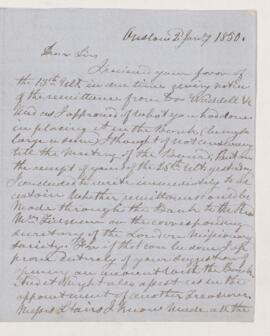 2d Jany 1850.
Dear Sir
I received your favor of
the 15th Ult. in due time giving notice
of the remittance from
and as I approved of what you had done
in placing it in the Bank, (being a
large sum) I thought of not answering
till the meeting of the Board, but on
the receipt of yours of the 26th Ult. yesterday
I concluded to write immediately to as-
certain whether remittances could be
made through the Bank to the Revd
Mr. the corresponding
secretary of the London Missionary
society. If this can be done I ap-
prove entirely of your suggestion of
opening an account with the Bank
And it might also assist us in the
appointment of another Treasurer.
Messrs I know made all the